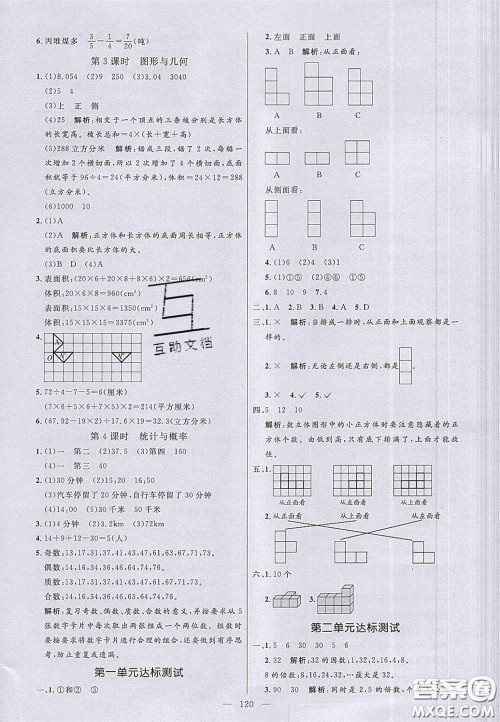 6. 丙堆煤多 3/5-1/4=7/20(吨)
第3课时 图形与几何
1. (1)8.054 (2)9 250 (3)42
(2)5 4
(3)上 正 侧
(4)25 解析:相交于一个顶点的三条棱分别是长方体
的长宽高。棱长总和=4×(长+宽+高)。
(5)288立方分米 解析:锯成三段,锯了2次,每锯一
次增加2个横切面,所以增加了4个横切面,所以底
面积就等于96÷4=24(平方分米),体积=24×12=288
(立方分米)。
(6)1000 10
2. (1)A
(2)A 解析:正方体和长方体的底面周长相等,正方体
的底面积要比长方体的大。
(3)B (4)D (5)A
3. 表面积:(20×6+20×8+8×6)×2=656(cm²)
体积:20×6×8=960(cm³)
表面积:15×15×6=1350(cm²)
体积:15×15×15=3375(cm³)
4.
5. 72÷4-7-5=6(厘米)
(7×6+7×5+6×5)×2=214(平方厘米)
6. (67.92-20×2)÷4=6.98(分米)
第4课时 统计与概率
1. (1)一 第二 (2)37.5 (3)第四 160
(4)一 第三 40
2. (1)30分钟 (2)15分钟 50分钟
(3)汽车停留了20分钟,自行车停留了30分钟。
3. (1)50分钟 (2)2km (3)72km
4. 14+9+12-30=5(人)
5. 奇数:13,17,31,37,41,43,47,61,63,67,71,73.
偶数:14,16,34,36,64,74,46,76.
质数:13,17,31,37,41,43,47,61,67,71,73.
合数:14,16,34,36,46,63,64,74,76.
解析:复习奇数、偶数、质数、合数的意义,并考查从5
张数字卡片中选两张组成两位数的能力。解题时要
按要求将数字卡片进行不同的组合,组成不同的数。
第一单元达标测试
一、1. ①和② ③
2. 左面 正面 上面
3. A B 解析:从正面看:
A B C
从上面看:
A B C
从侧面看:
A B C
4. (1)6 (2)4 (3)1
5. (1)①⑤ (2)①⑤ (3)①⑤
6. 8 10 9 7. 4
二、1. A 2. B 3. A 4. B 5. A
三、1. × 解析:当排成一排时,从正面和上面观察都是一
样的。
2. × 解析:无论左侧还是右侧,都是
3. × 4. ✓ 5. ✓
四、5 12 10
解析:数立体图形中的小正方体时要注意隐藏着的正
方体个数。由于底下都排满了,所以上面也都排满了。
五、1.
从正面看 从左面看 从上面看
2. 从正面看 从左面看 从上面看
六、1. 10个
2.
第二单元达标测试
一、1. 5 6 30 30 5 6
2. 32 解析:32的因数:1,32,2,16,4,8.
8的倍数:8,16,24,32……
3. 90 30 解析:同时是2、5的倍数,个
120
互助文档